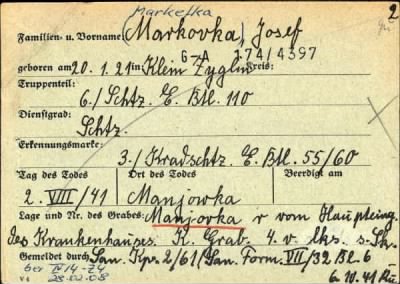 Marketka
2
Familien- u. Vorname: (Markovka) Josef
G-A 174/4397
geboren am 20.1.21 in Klein Zyglin Kreis:
Truppenteil:
6./Schtz. E. Btl. 110
Dienstgrad:
Schtz.
Erkennungsmarke:
3./Kradschtz. E. Btl. 55/60
Tag des Todes Ort des Todes Beerdigt am
2. VIII/41 Manjowka
Lage und Nr. des Grabes: Manjovka r vom Haupteing.
des Krankenhauses. K. Grab. 4. v. lks. s. Sk.
Gemeldet durch San. Kp. 2/61/San. Form. VII/32 Bl. 6
6.10.41
28.02.08